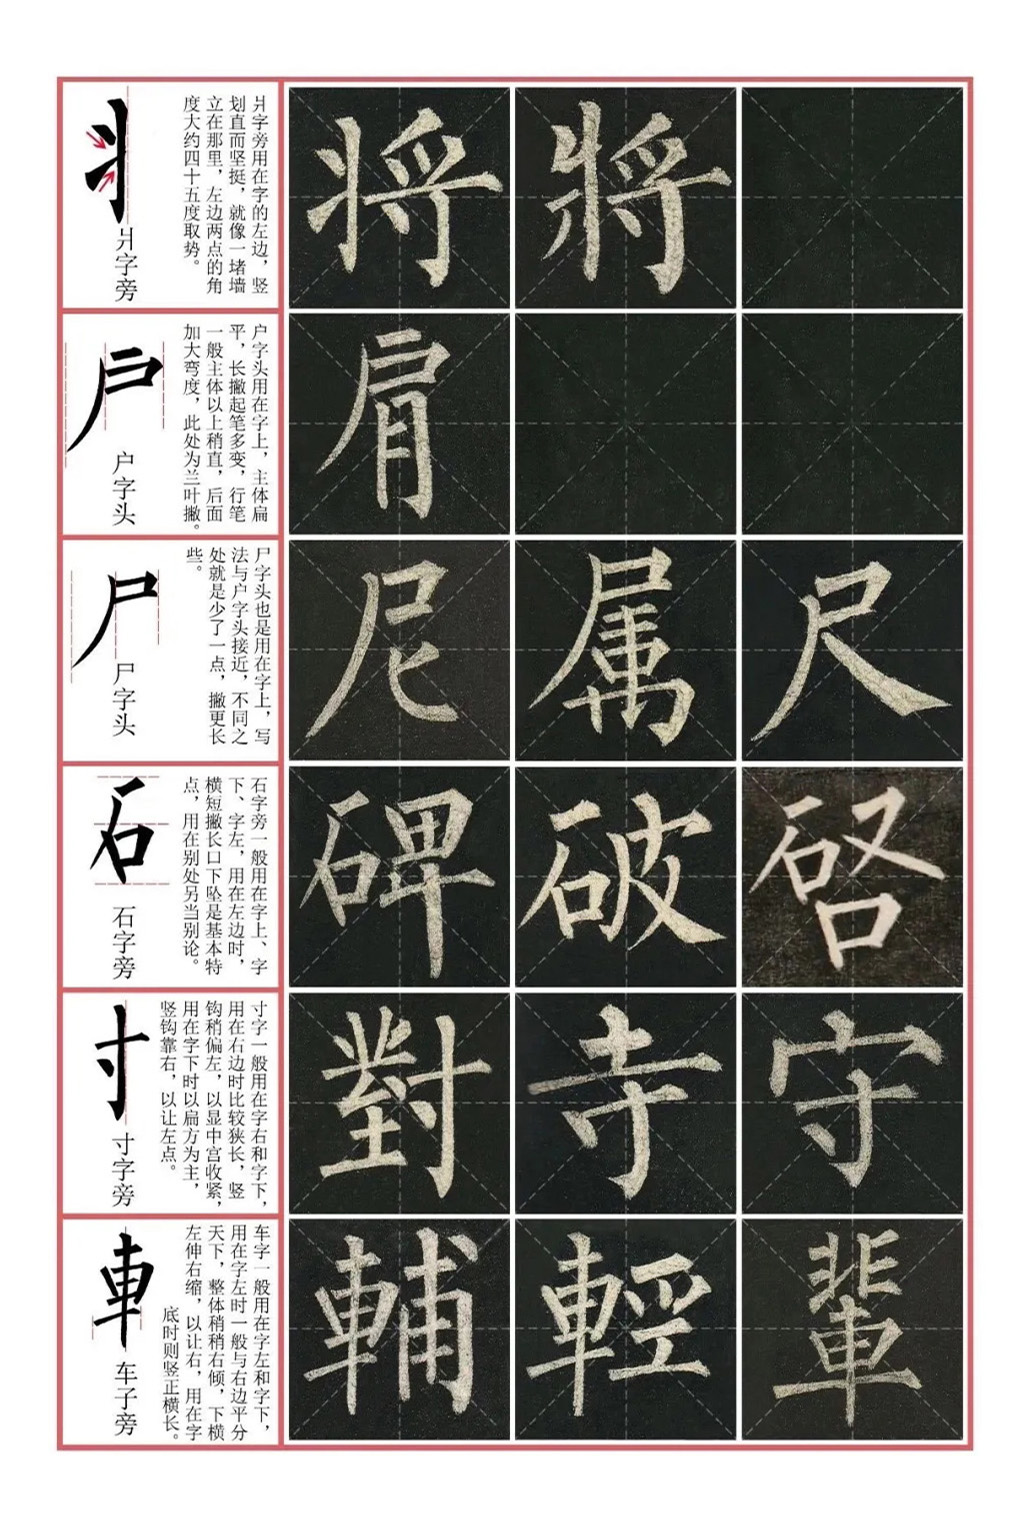 爿字旁
爿字旁用在字的左边，竖
划直而坚挺，就像一堵墙
立在那里，左边两点的角
度大约四十五度取势。
将
將
户
户字头
户字头用在字上，主体扁
平，长撇起笔多变，行笔
一般主体以上稍直，后面
加大弯度，此处为兰叶撇。
肩
尸
尸字头
尸字头也是用在字上，写
法与户字头接近，不同之
处就是少了一点，撇更长
些。
尼
属
尺
石
石字旁
石字旁一般用在字上、字
下、字左，用在左边时，
横短撇长口下坠是基本特
点，用在别处另当别论。
碑
破
寸
寸字旁
寸字一般用在字右和字下，
用在右边时比较狭长，竖
钩稍偏左，以显中宫收紧，
用在字下时以扁方为主，
竖钩靠右，以让左点。
對
寺
守
車
车子旁
车字一般用在字左和字下，
用在字左时一般与右边平分
天下，整体稍稍右倾，下横
左伸右缩，以让右，用在字
底时则竖正横长。
輔
輕
輩